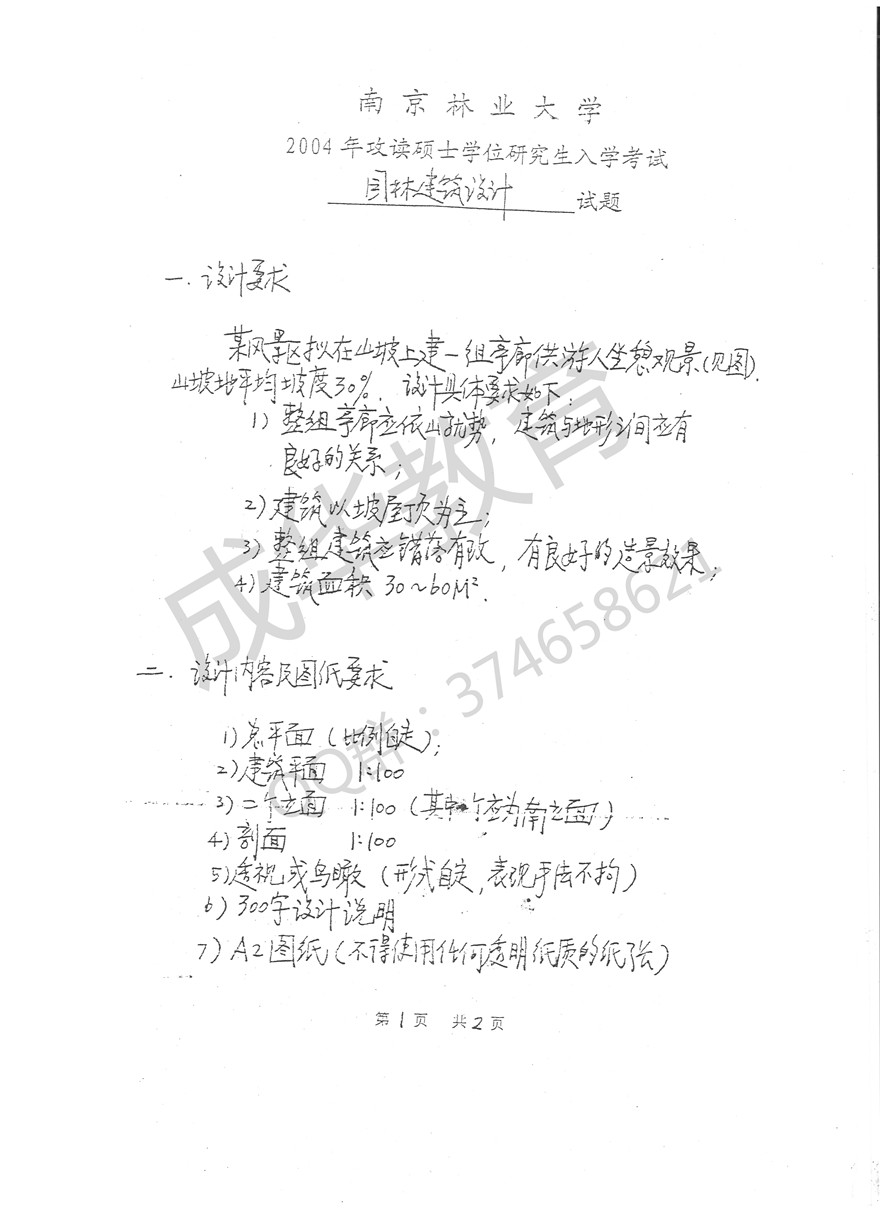 南京林业大学
2004年攻读硕士学位研究生入学考试
园林建筑设计 试题
一.设计要求
某风景区拟在山坡上建一组亭廊供游人坐憩观景(见图).
山坡地平均坡度30%.设计具体要求如下:
1)整组亭廊应依山就势,建筑与地形之间应有
良好的关系;
2)建筑以坡屋顶为主;
3)整组建筑应错落有致,有良好的造景效果;
4)建筑面积 30~60M².
二.设计内容及图纸要求
1)总平面(比例自定);
2)建筑平面 1:100
3)二个立面 1:100(其中一个应为南立面)
4)剖面 1:100
5)透视或鸟瞰(形式自定,表现手法不拘)
6)300字设计说明
7)A2图纸(不得使用任何透明纸质的纸张)
第1页 共2页
成华教育
QQ群:374658621